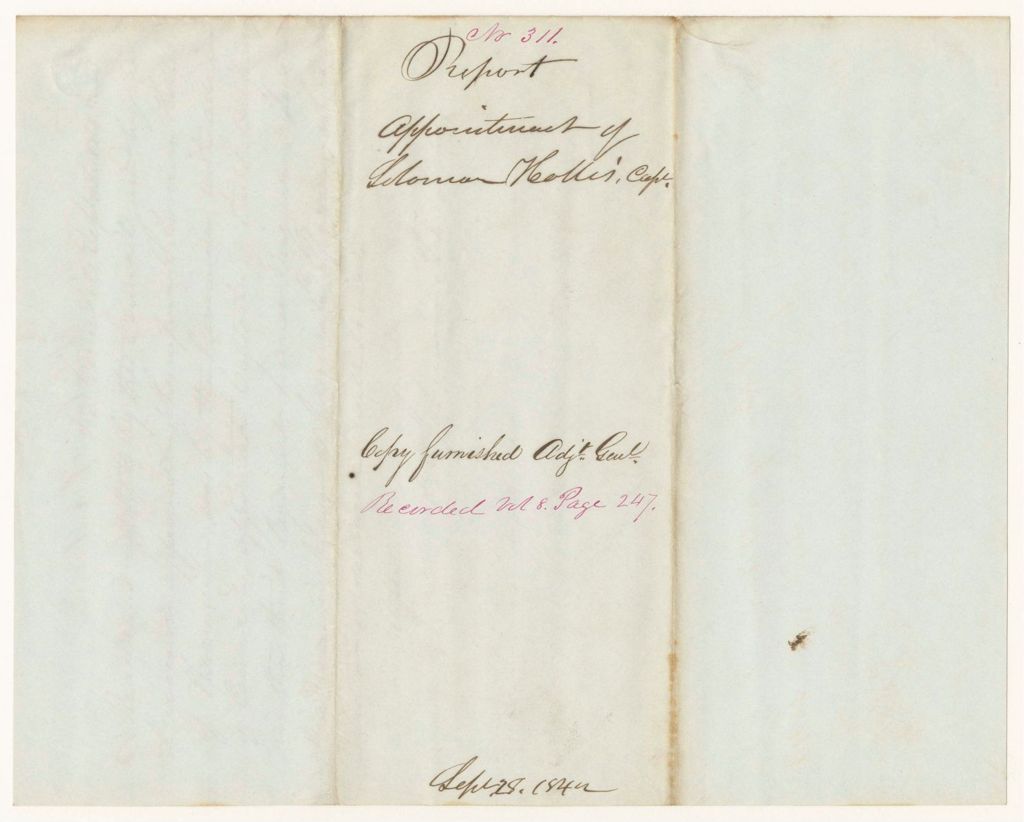 No 311.
Report
Appointment of
Solomon Hollis, Capt.
Copy furnished Adjt. Genl.
Recorded Vol 8. Page 247.
Sept 28. 1842